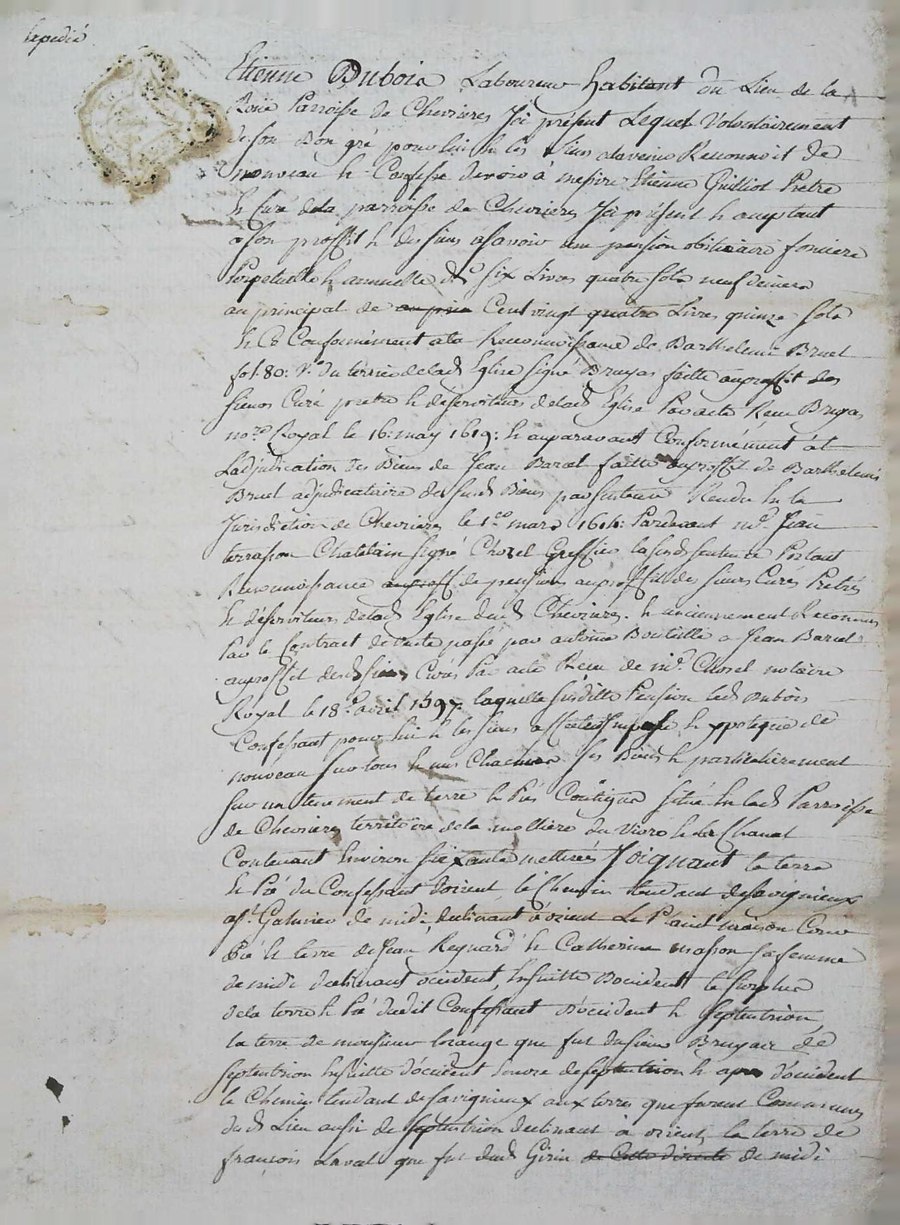 Expedié
Etienne Dubois Laboureur habitant du Lieu de la
Roüe Parroisse de Chevrieres Jci présent Lequel Volontairement
de son Bon gré pour lui & les siens alavenir Reconnoit de
nouveau & Confesse devoir à messire Etienne Guilliot Prêtre
& Curé dela parroisse de Chevrieres Jci présent & acceptant
a son proffit & des siens asavoir une pension obituaire fonciere
Perpetuelle & annuelle de six Livres quatre sols neuf deniers
au principal de au prin Cent vingt quatre Livres quinze sols
& Ce Conformément ala Reconnoissance de Barthelemi Bruel
fol 80: v.º du terrier delad Eglise signé Bruyas faitte auproffit des
sieurs Curé pretre & desserviteurs delad Eglise Par acte Recu Bruyas
no.re Royal le 16: may 1619: & auparavant Conformément à
Ladjudication des Biens de Jean Barcel faitte auproffit de Barthelemi
Bruel adjudicataire desusd Biens par sentence Rendue En la
Jurisdiction de Chevrieres le 1.er mars 1614: Pardevant m.e Jean
terrasson Chatelain signé Chorel Greffier lasusd sentence Portant
Reconnoissance auproff de pensions auproffit des sieurs Curés Pretres
& desserviteurs delad Eglise dud Chevrieres. & anciennement Reconnus
Par le Contract de vente passé par antoine Bouteille a Jean Barcel
auproffit desd sieurs Curés Par acte Recu de m.e Chorel notaire
Royal le 18.e avril 1597. laquelle susditte Pension led Dubois
Confessant pour lui & les siens & hypoteque de
nouveau sur tous & uns Chacuns ses Biens & particulierement
sur un tenement de terre & Prés Contigus situé En lad Parroisse
de Chevrieres territoire dela mollière du Vivro & de Chanal
Contenant Environ soixante metterées Joignant la terre
& Pré du Confessant dorient, le Chemin tendant desavignieux
a St Galmier de midi, declinant à orient Le Plaint maison Cour
Pré & terre de Jean Regnard & Catherine masson sa femme
de midi declinant occident, Ensuitte doccident le surplus
dela terre & Pré dudit Confessant d'occident & septentrion
la terre de monsieur lorange que fut du sieur Bruyas de
septentrion Ensuitte d'occident Encore de septentrion & apres d'occident
le Chemin tendant desavignieux aux terres que furent Communes
dud Lieu aussi de septentrion declinant à orient, la terre de
françois Laval que fut dud Girin de Cette directe de midi